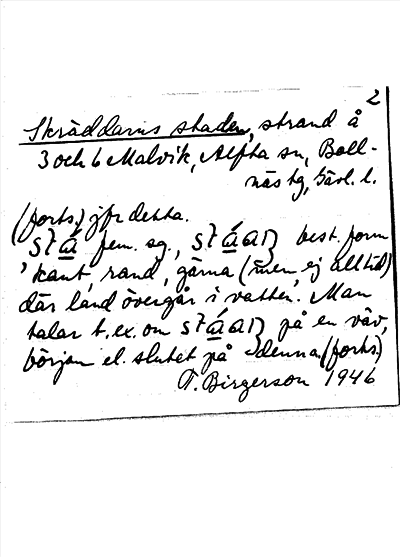 2
Skräddarns staden, strand å
3 och 6 Malvik, Alfta sn, Boll-
näs tg, Gävl. l.
(forts.) jfr detta.
fem. sg., best. form
'kant, rand, gärna (men ej alltid)
där land övergår i vatten. Man
talar t.ex. om på en väv,
början el. slutet på denna. (forts.)
T. Birgerson 1946